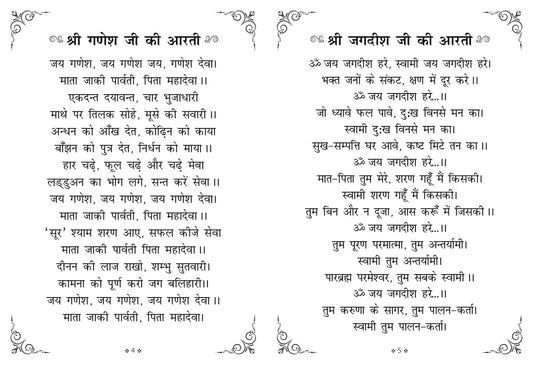 श्री गणेश जी की आरती
जय गणेश, जय गणेश जय, गणेश देवा।
माता जाकी पार्वती, पिता महादेवा।।
एकदन्त दयावन्त, चार भुजाधारी
माथे पर तिलक सोहे, मूसे की सवारी।।
अन्धन को आँख देत, कोढ़िन को काया
बाँझन को पुत्र देत, निर्धन को माया।।
हार चढ़े, फूल चढ़े और चढ़े मेवा
लड्डुअन का भोग लगे, सन्त करें सेवा।।
जय गणेश, जय गणेश, जय गणेश देवा।
माता जाकी पार्वती, पिता महादेवा।।
'सूर' श्याम शरण आए, सफल कीजे सेवा
माता जाकी पार्वती पिता महादेवा।।
दीनन की लाज राखो, शम्भु सुतवारी।
कामना को पूर्ण करो जग बलिहारी।।
जय गणेश, जय गणेश, जय गणेश देवा।।
माता जाकी पार्वती, पिता महादेवा।
4
श्री जगदीश जी की आरती
ॐ जय जगदीश हरे, स्वामी जय जगदीश हरे।
भक्त जनों के संकट, क्षण में दूर करे।।
ॐ जय जगदीश हरे...।।
जो ध्यावे फल पावे, दुःख विनसे मन का।
स्वामी दुःख विनसे मन का।
सुख-सम्पत्ति घर आवे, कष्ट मिटे तन का।।
ॐ जय जगदीश हरे...।।
मात-पिता तुम मेरे, शरण गहूँ मैं किसकी।
स्वामी शरण गहूँ मैं किसकी।
तुम बिन और न दूजा, आस करूँ मैं जिसकी।।
ॐ जय जगदीश हरे...।।
तुम पूरण परमात्मा, तुम अन्तर्यामी।
स्वामी तुम अन्तर्यामी।
पारब्रह्म परमेश्वर, तुम सबके स्वामी।।
ॐ जय जगदीश हरे...।।
तुम करुणा के सागर, तुम पालन-कर्ता।
स्वामी तुम पालन-कर्ता।
5